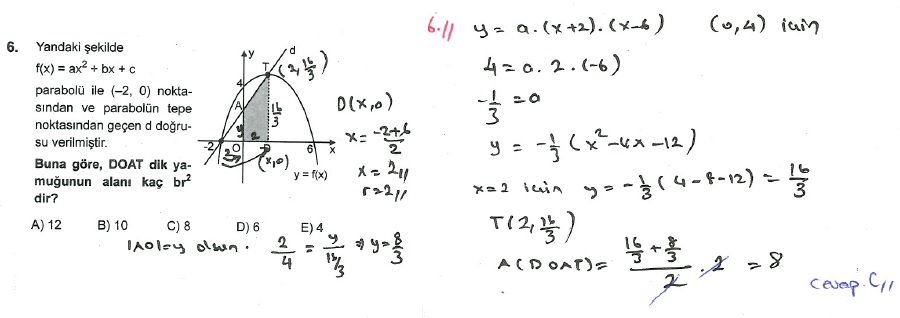 6. Yandaki şekilde
f(x) = ax² + bx + c
parabolü ile (–2, 0) nokta-
sından ve parabolün tepe
noktasından geçen d doğru-
su verilmiştir.
Buna göre, DOAT dik ya-
muğunun alanı kaç br²
dir?
A) 12 B) 10 C) 8 D) 6 E) 4
y
d
T (2, 16/3)
4
A
16/3
y
2
-2 O 6 x
2
(x,0)
y = f(x)
D(x,0)
x = -2+6/2
x = 2//
r = 2//
|AO|=y olsun. 2/4 = y/16/3 ⇒ y = 8/3
6.// y = a.(x+2).(x-6) (0,4) için
4 = a.2.(-6)
-1/3 = a
y = -1/3 (x²-4x-12)
x=2 için y = -1/3 (4-8-12) = 16/3
T(2, 16/3)
A(DOAT) = 16/3 + 8/3 / 2 . 2 = 8
Cevap. C//